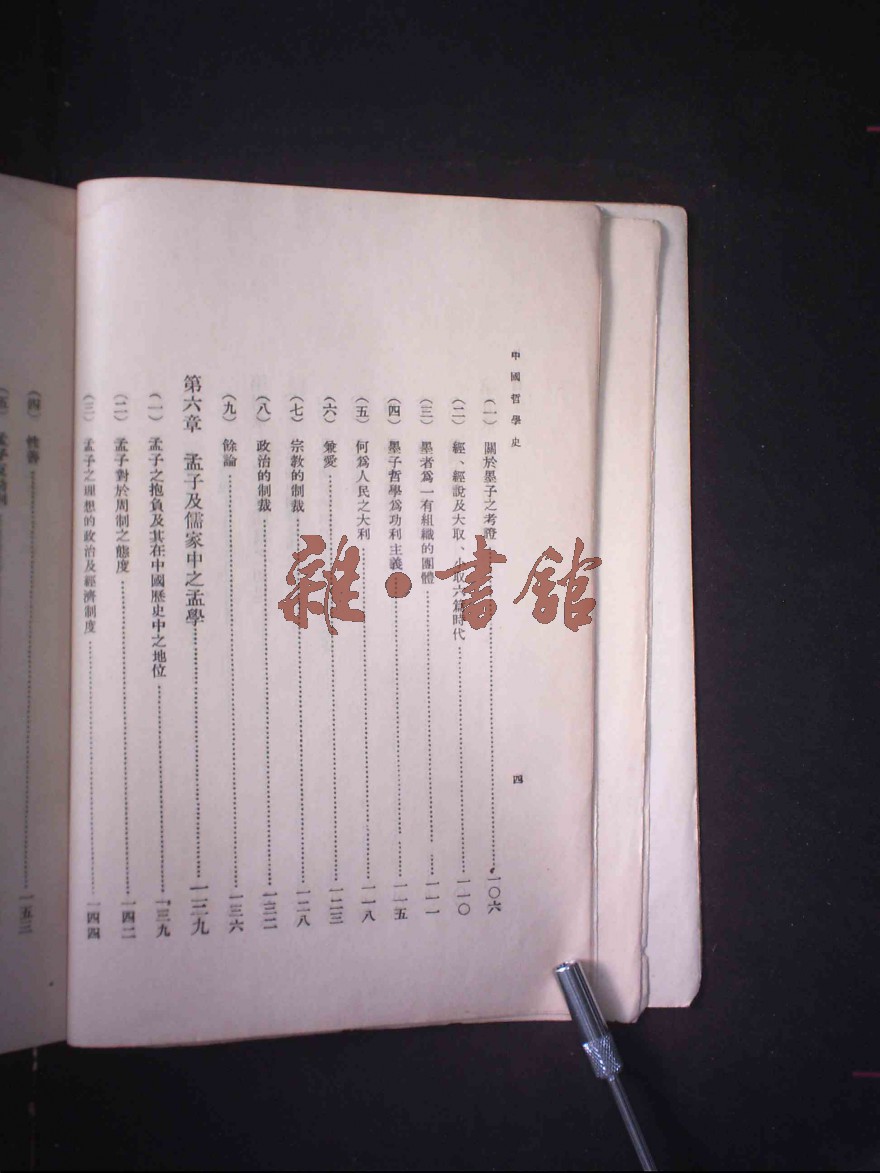 中國哲學史
四
(一) 關於墨子之考證……一〇六
(二) 經、經說及大取、小取六篇時代……一一〇
(三) 墨者為一有組織的團體……一一一
(四) 墨子哲學為功利主義……一一五
(五) 何為人民之大利……一一八
(六) 兼愛……一二三
(七) 宗教的制裁……一二八
(八) 政治的制裁……一三二
(九) 餘論……一三六
第六章 孟子及儒家中之孟學……一三九
(一) 孟子之抱負及其在中國歷史中之地位……一三九
(二) 孟子對於周制之態度……一四二
(三) 孟子之理想的政治及經濟制度……一四四
(四) 性善……一五三
雜·書館